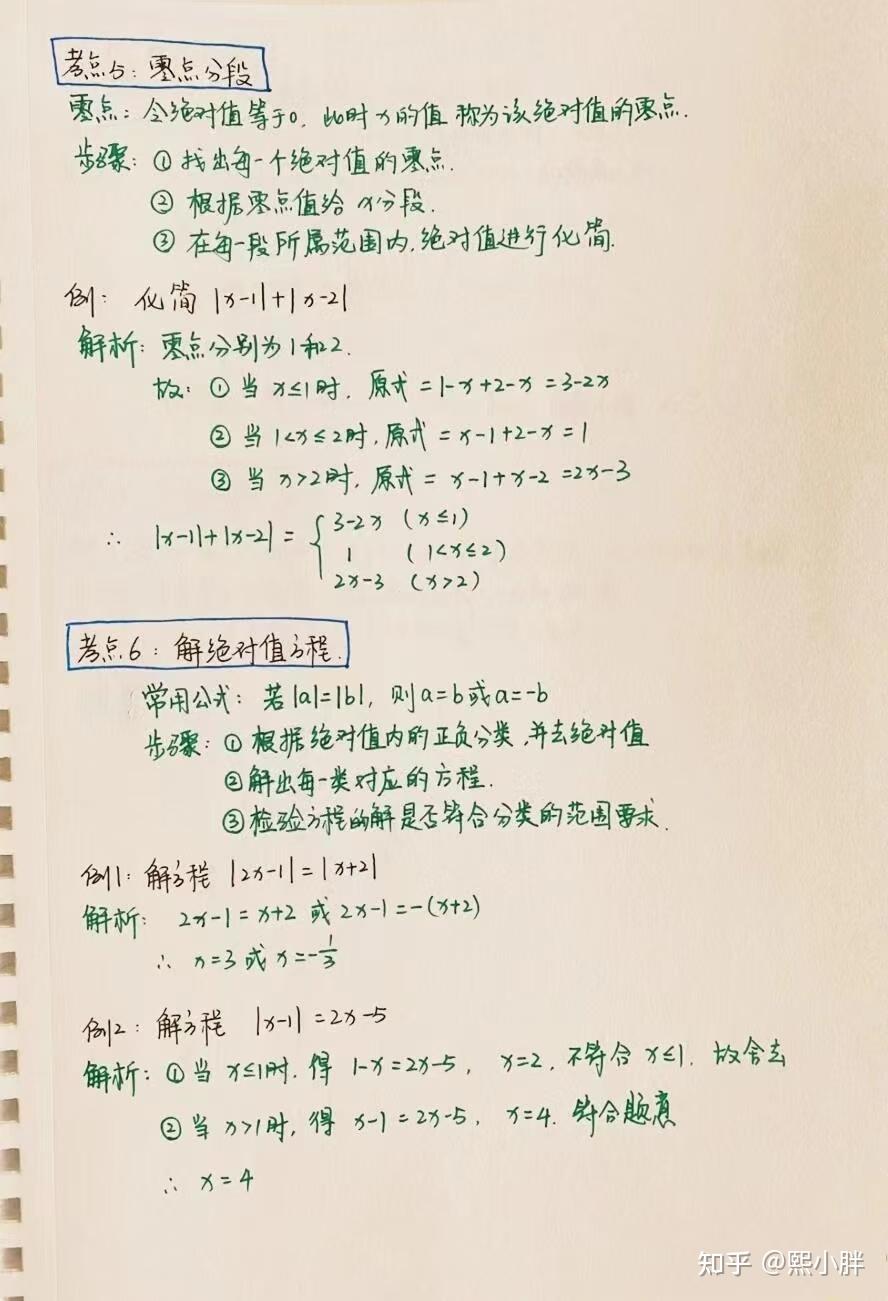 考点5：零点分段
零点：令绝对值等于0，此时x的值称为该绝对值的零点.
步骤：① 找出每一个绝对值的零点.
② 根据零点值给x分段.
③ 在每一段所属范围内，绝对值进行化简.
例：化简 |x-1|+|x-2|
解析：零点分别为1和2.
故：① 当 x≤1时，原式 =1-x+2-x=3-2x
② 当 1<x≤2时，原式 = x-1+2-x=1
③ 当 x>2时，原式 = x-1+x-2=2x-3
∴ |x-1|+|x-2| = { 3-2x (x≤1)
1 (1<x≤2)
2x-3 (x>2)
考点6：解绝对值方程.
常用公式：若|a|=|b|，则a=b或a=-b
步骤：① 根据绝对值内的正负分类，并去绝对值
②解出每一类对应的方程.
③检验方程的解是否符合分类的范围要求.
例1：解方程 |2x-1|=|x+2|
解析：2x-1=x+2 或 2x-1=-(x+2)
∴ x=3 或 x=-1/3
例2：解方程 |x-1|=2x-5
解析：①当 x≤1时，得 1-x=2x-5，x=2，不符合 x≤1，故舍去
②当 x>1时，得 x-1=2x-5，x=4，符合题意
∴ x=4
知乎 @熙小胖